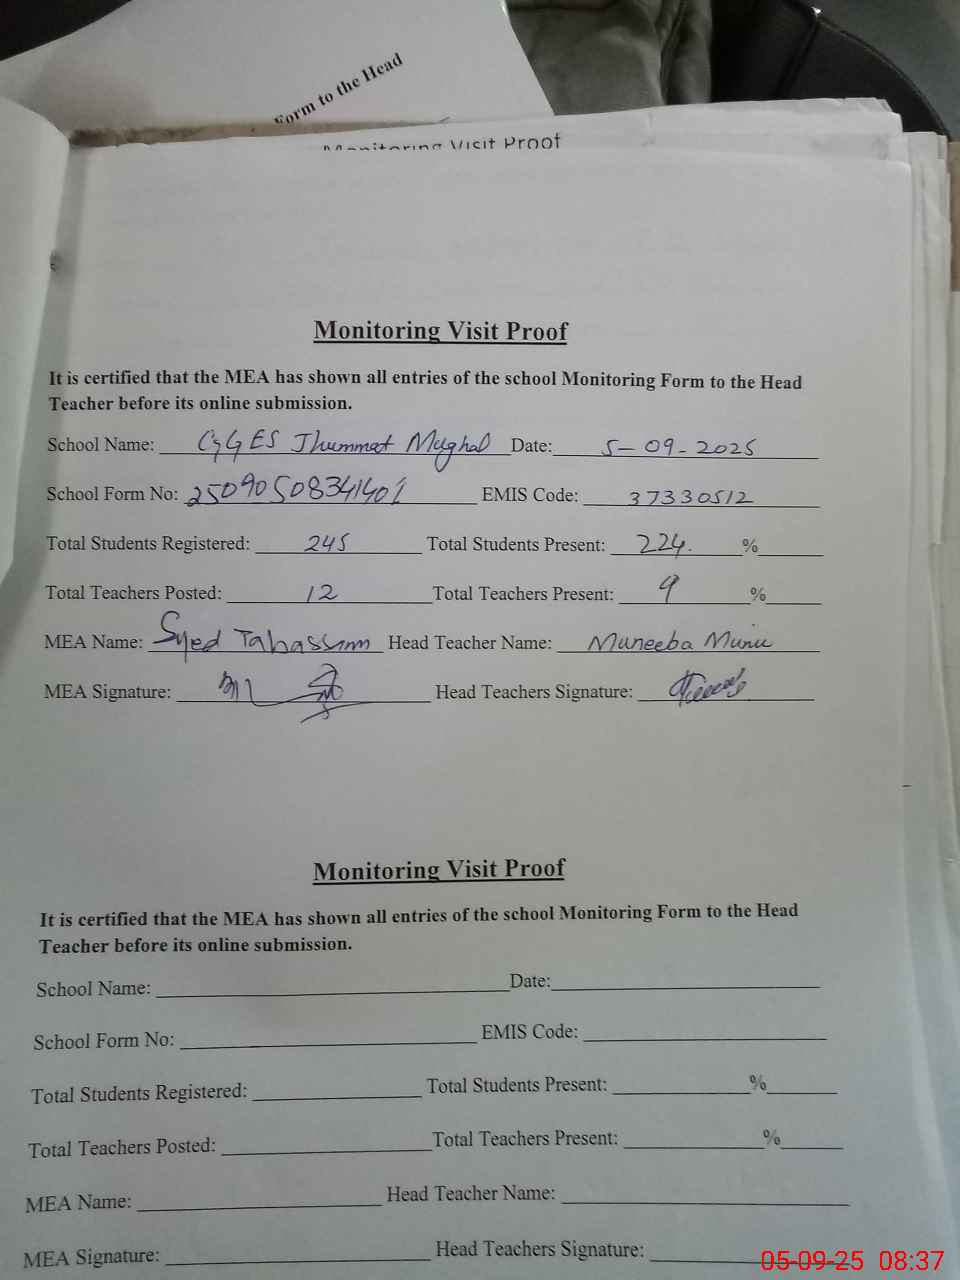 Form to the Head
Monitoring Visit Proof
Monitoring Visit Proof
It is certified that the MEA has shown all entries of the school Monitoring Form to the Head
Teacher before its online submission.
School Name: GGES Jhummat Mughal Date: 5-09-2025
School Form No: 25090508341401 EMIS Code: 37330512
Total Students Registered: 245 Total Students Present: 224. %
Total Teachers Posted: 12 Total Teachers Present: 9 %
MEA Name: Syed Tabassum Head Teacher Name: Muneeba
MEA Signature: Head Teachers Signature:
Monitoring Visit Proof
It is certified that the MEA has shown all entries of the school Monitoring Form to the Head
Teacher before its online submission.
School Name: Date:
School Form No: EMIS Code:
Total Students Registered: Total Students Present: %
Total Teachers Posted: Total Teachers Present: %
MEA Name: Head Teacher Name:
MEA Signature: Head Teachers Signature:
05-09-25 08:37